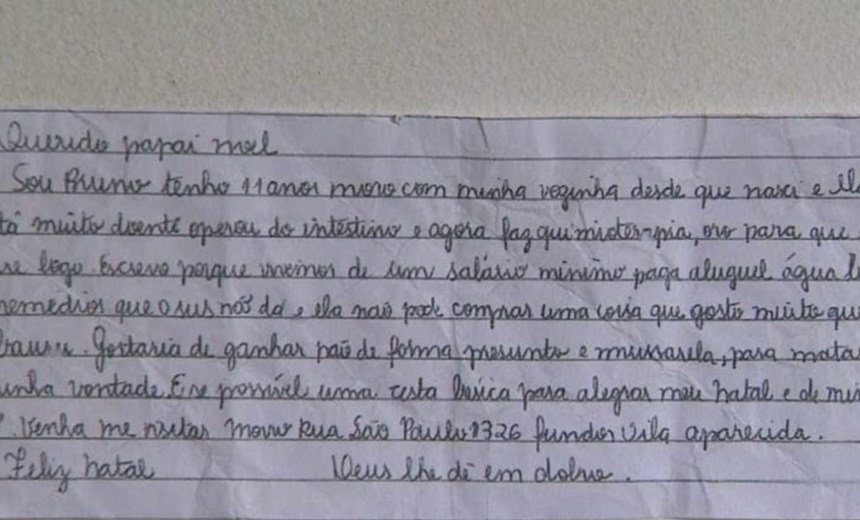 Querido papai noel
Sou Bruno tenho 11 anos moro com minha vozinha desde que nasci e ela
tá muito doente operou do intestino e agora faz quimioter-pia, oro para que
re logo. Escrevo porque vivemos de um salário mínimo paga aluguel água l
remedios que o sus nós dá, ela naõ pode comprar uma coisa que gosto muito que
bauru. Gostaria de ganhar paõ de forma presunto e mussarela, para matar
inha vontade. E se possível uma cesta básica para alegrar meu natal e de min
. Venha me visitar moro Rua São Paulo 1326 fundos Vila aparecida.
Feliz natal Deus lhe dê em dobro.